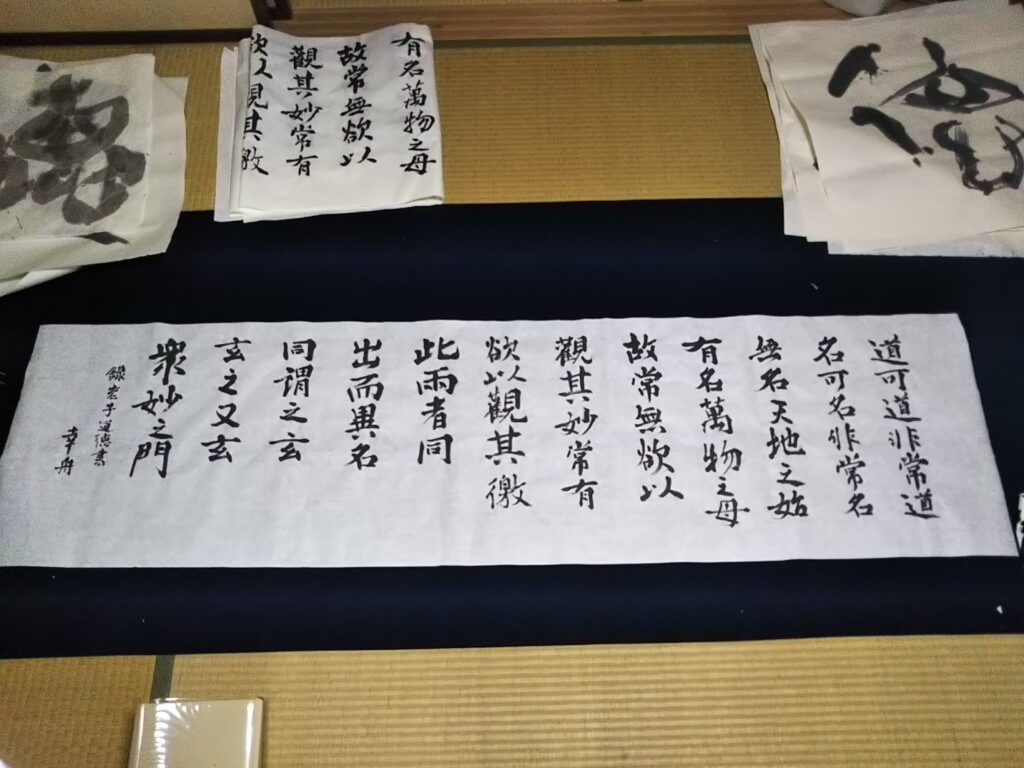 道可道非常道
名可名非常名
無名天地之始
有名萬物之母
故常無欲以
觀其妙常有
欲以觀其徼
此兩者同
出而異名
同謂之玄
玄之又玄
衆妙之門
錄老子道德書
幸舟
有名萬物之母
故常無欲以
觀其妙常有
欲以觀其徼